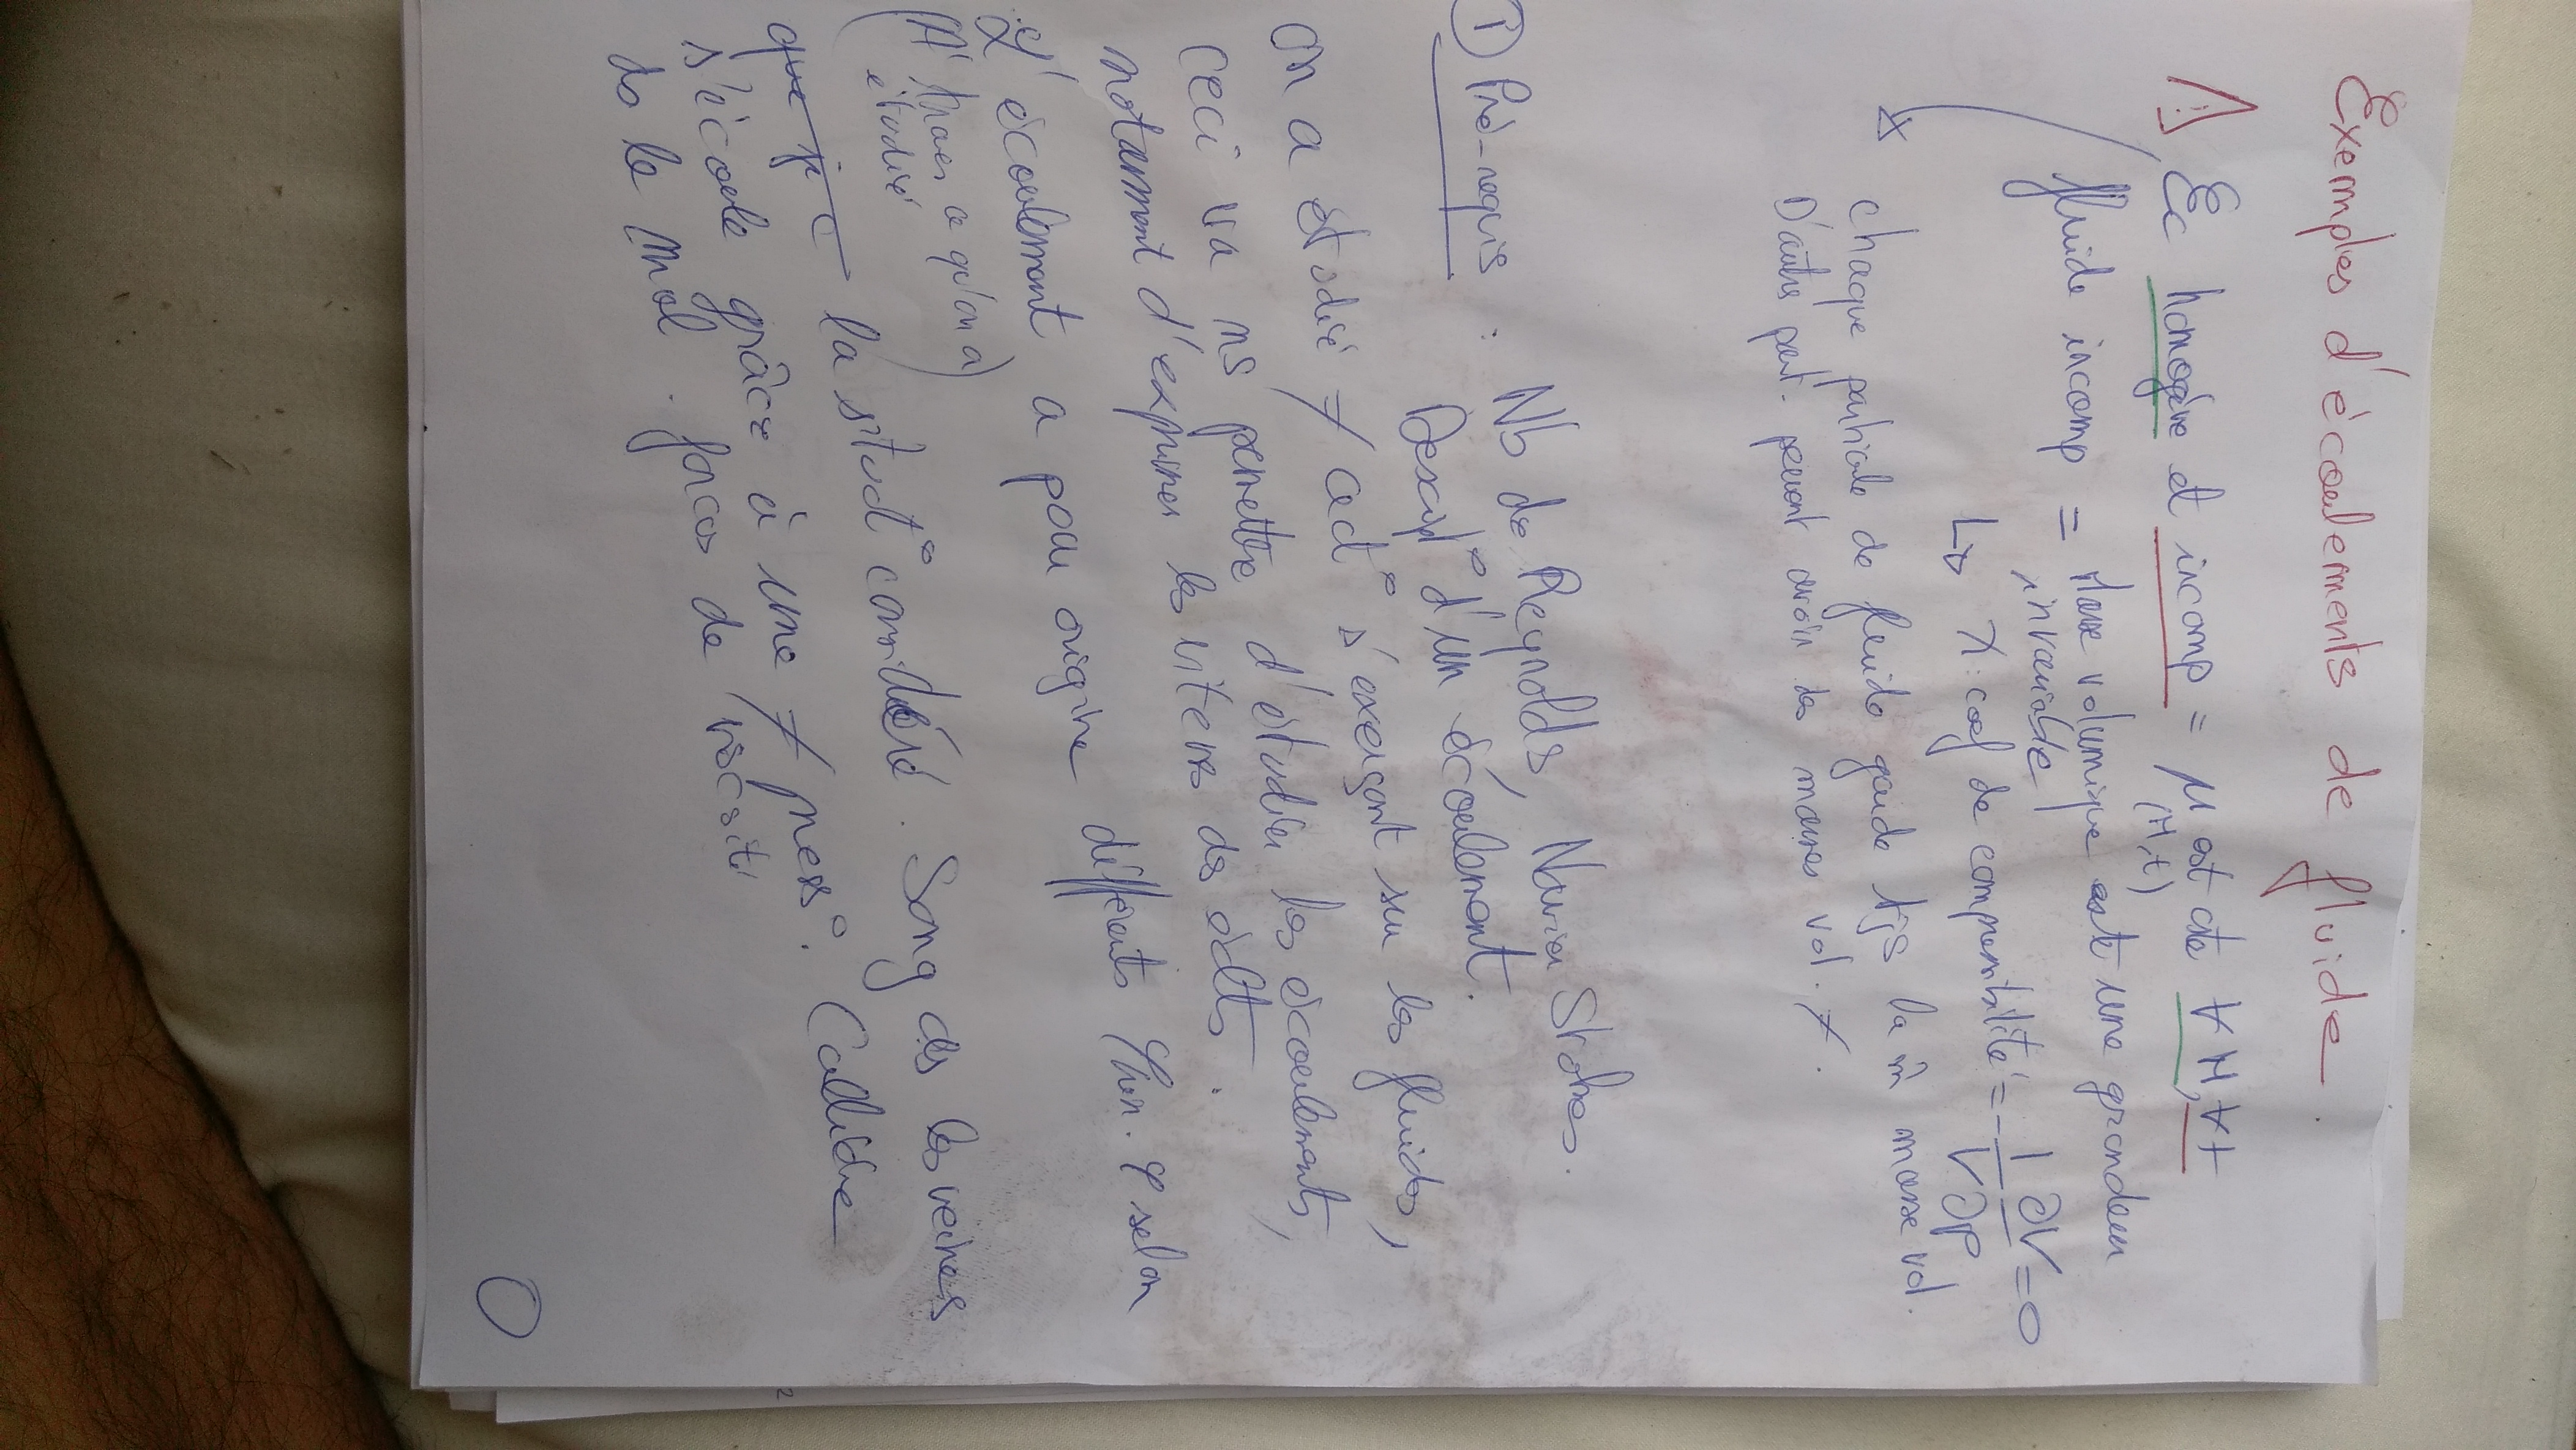 Exemples d'écoulements de fluide.
⚠ Ec homogène et incomp = µ(M,t) est cte ∀M, ∀t
fluide incomp = Masse volumique est une grandeur
invariable
↳ χ: coef de compressibilité = -1/V ∂V/∂P = 0
chaque particule de fluide garde tjs la m̂ masse vol.
D'autres part. peuvent avoir des masses vol. ≠.
① Pré-requis : Nb de Reynolds, Navier Stokes.
Descript° d'un écoulement.
On a étudié ≠ act° s'exerçant sur les fluides,
ceci va ns permettre d'étudier les écoulements,
notamment d'exprimer les vitesses des éclts.
L'écoulement a pour origine différents Phén. φ selon
(A' travers ce qu'on a)
étudié
que je la situat° considéré. Sang ds les veines
s'écoule grâce à une ≠ press°. (Colline
ds le mol. forces de viscosité
0
2